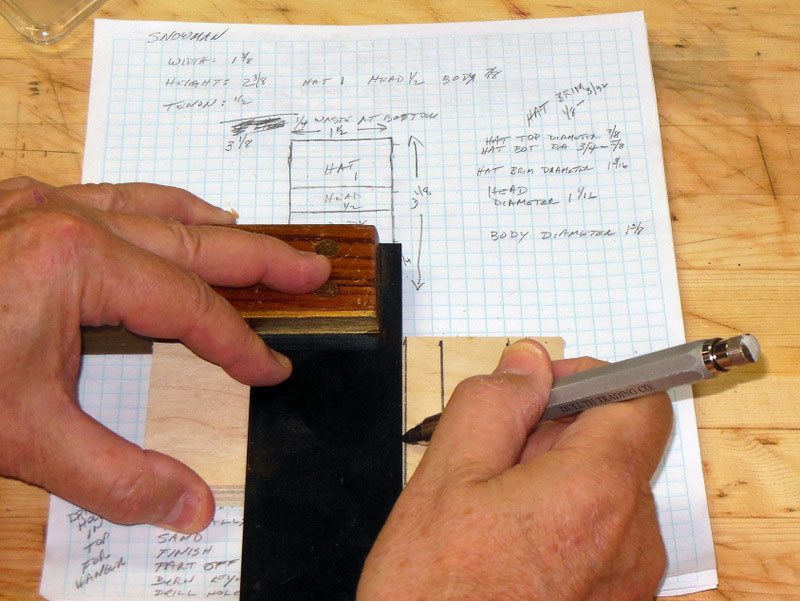 SNOWMAN
WIDTH: 1 3/8
HEIGHT: 2 3/8 HAT 1 HEAD 1/2 BODY 7/8
TENON: 1/2
1/4 WASTE AT BOTTOM
3 1/8
1 1/2
HAT
1
HEAD
1/2
3
HAT BRIM 3/32
1/8
HAT TOP DIAMETER 7/8
HAT BOT DIA 3/4 - 7/8
HAT BRIM DIAMETER
HEAD
DIAMETER 1 1/16
BODY DIAMETER 1 3/8
DULUTH TRADING CO.
IN
TOP
FOR
HANGUR
SAND
FINISH
PART OFF
BURN EYE
DRILL HOLE